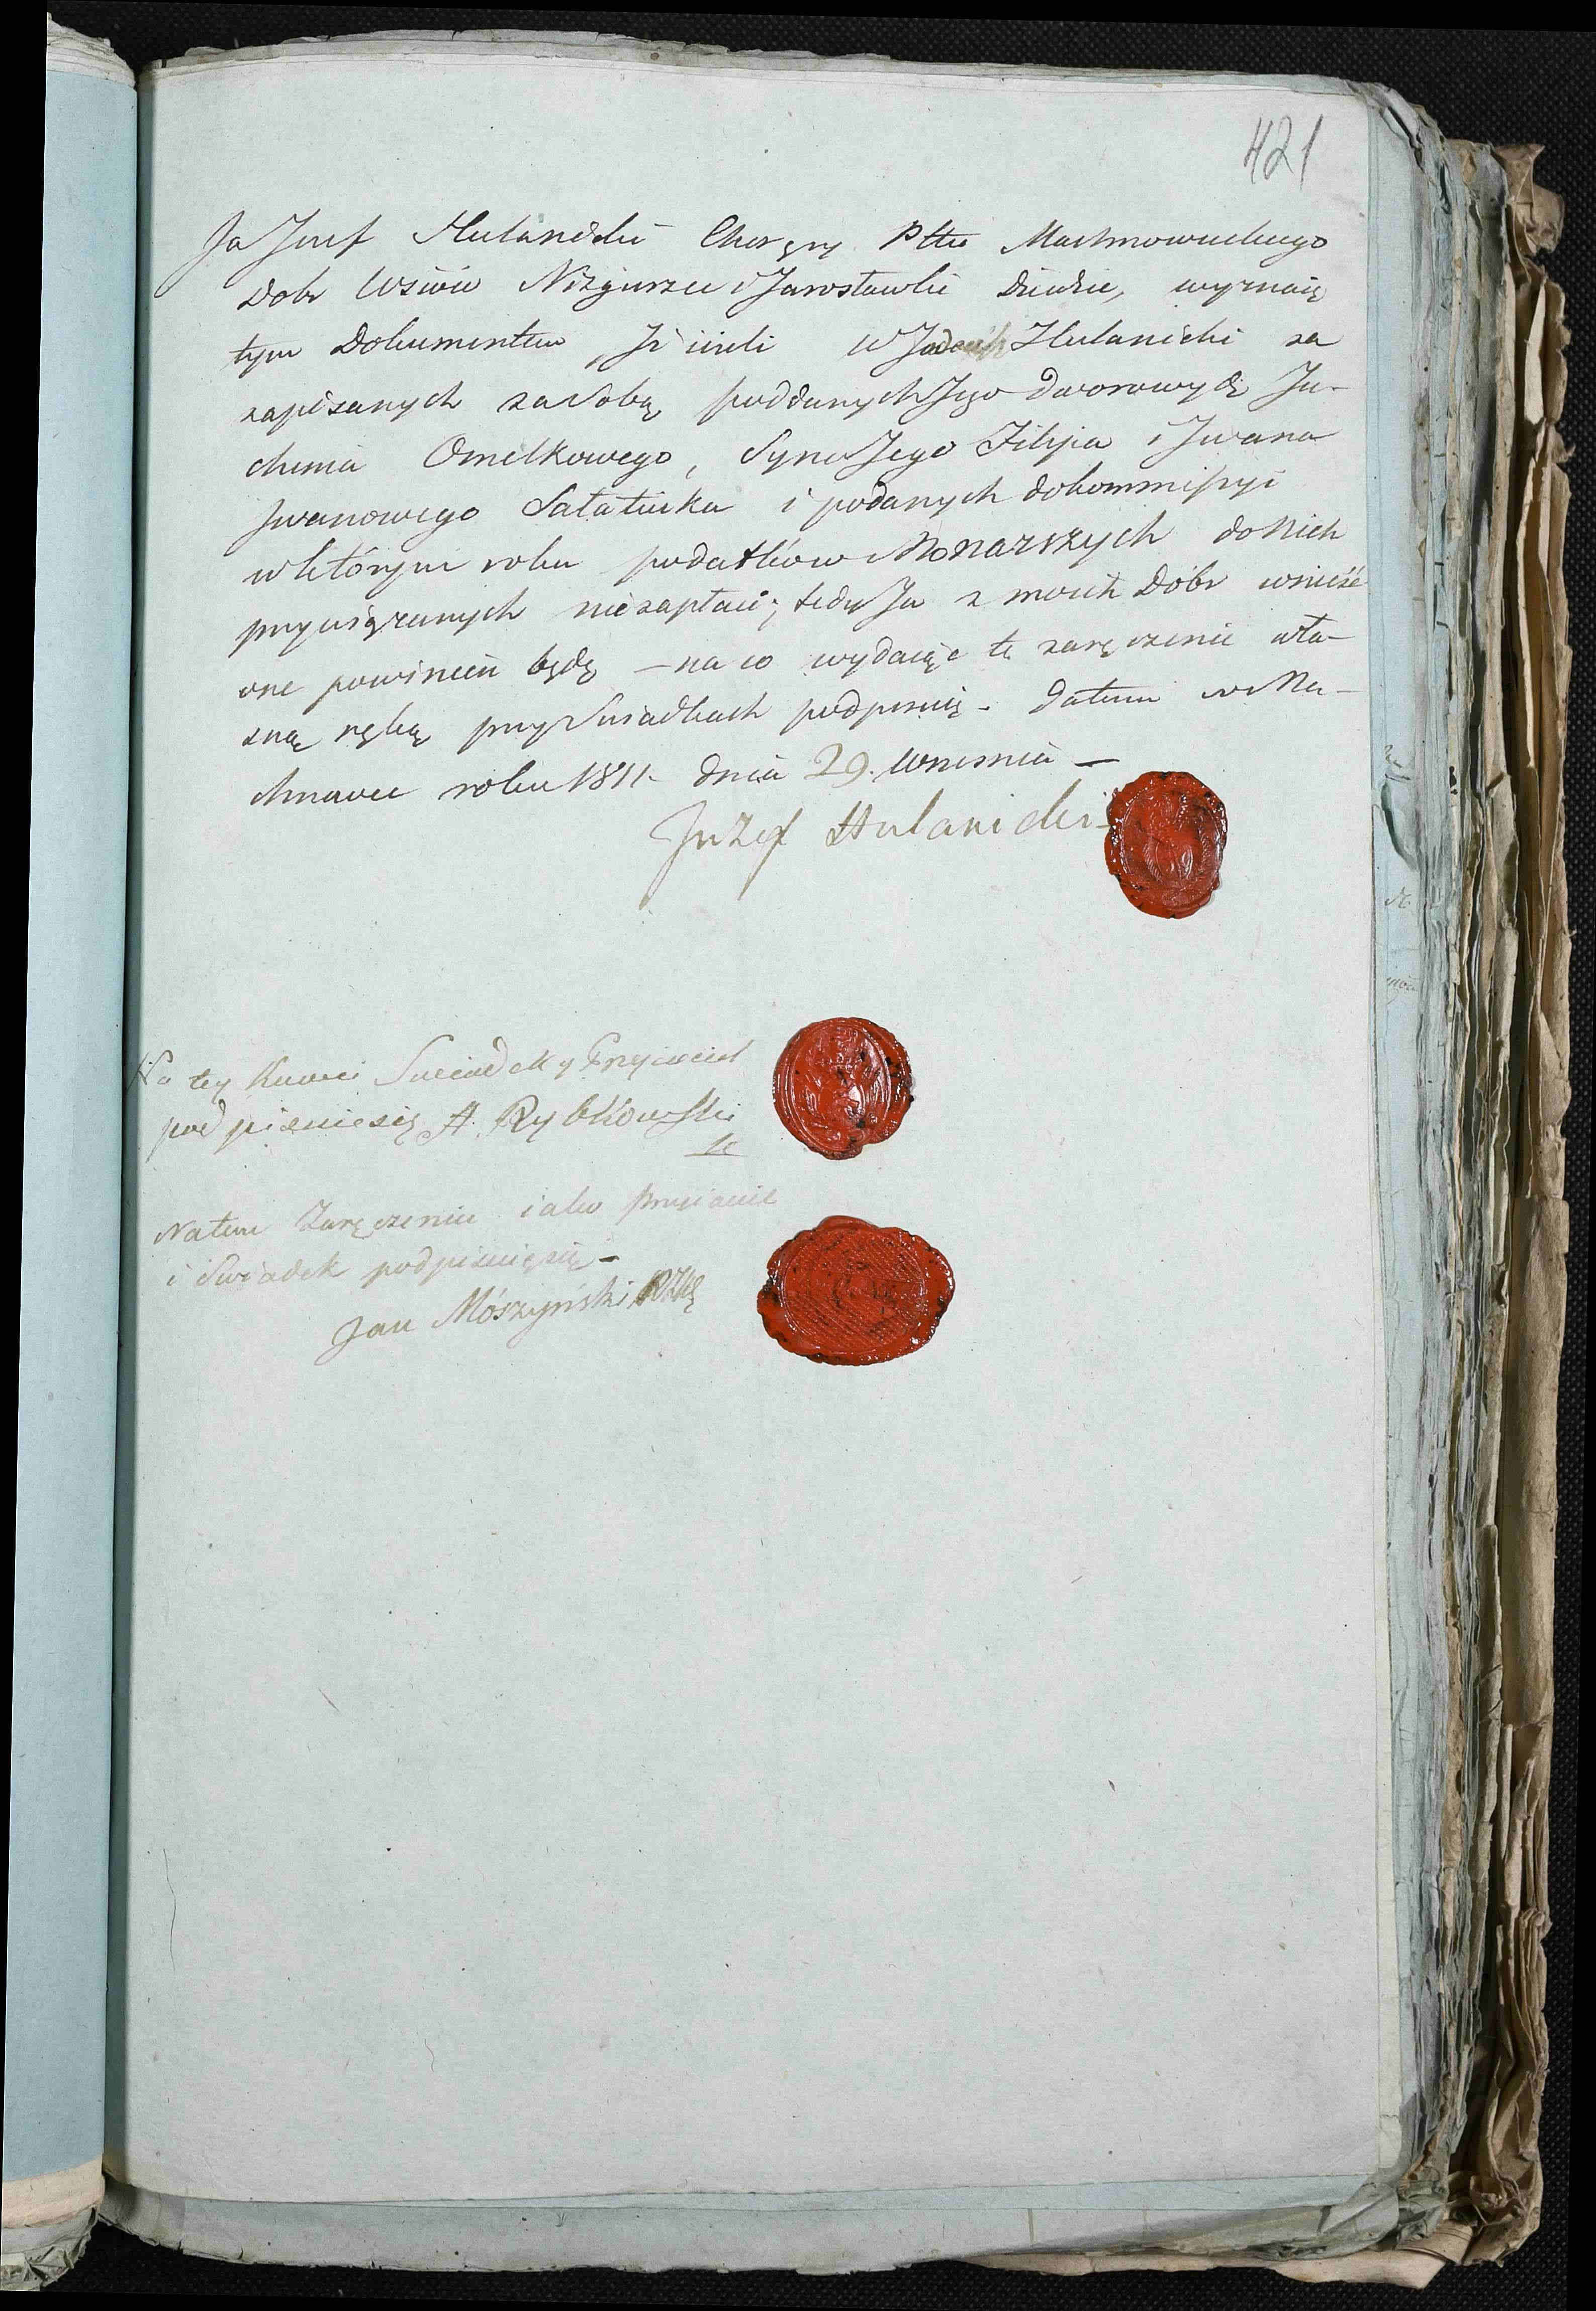 421
Ja Jozef Hulanicki Chorąży Pttu Machnowieckiego
Dobr Wsiów Niżgurzec i Jarosławki dziedzic, wyznaię
tym Dokumentem, Jż ieżeli W Hulanicki za
zapisanych za Sobą poddanych Jego dworowych Ja-
chima Omelkowego, Syna Jego Filipa i Jwana
Jwanowego Sałatiuka i podanych do kommissyi
w którym roku podatków Monarszych do Nich
przywiązanych nie zapłaci; tedy Ja z moich Dóbr wnieść
one powinien będę — na co wydaiąc tę zaręczenie wła-
sną ręką przy Swiadkach podpisuię. Datum w Ma-
chnowce roku 1811. dnia 29. Wrzesnia —
Juzef Hulanicki
Na tey Kawci Swiadek y Przyiaciel
podpisuiesię A. Rybkowski
Natem Zaręczeniu iako Przyiaciel
i Swiadek podpisuięsię —
Jan Mószyński